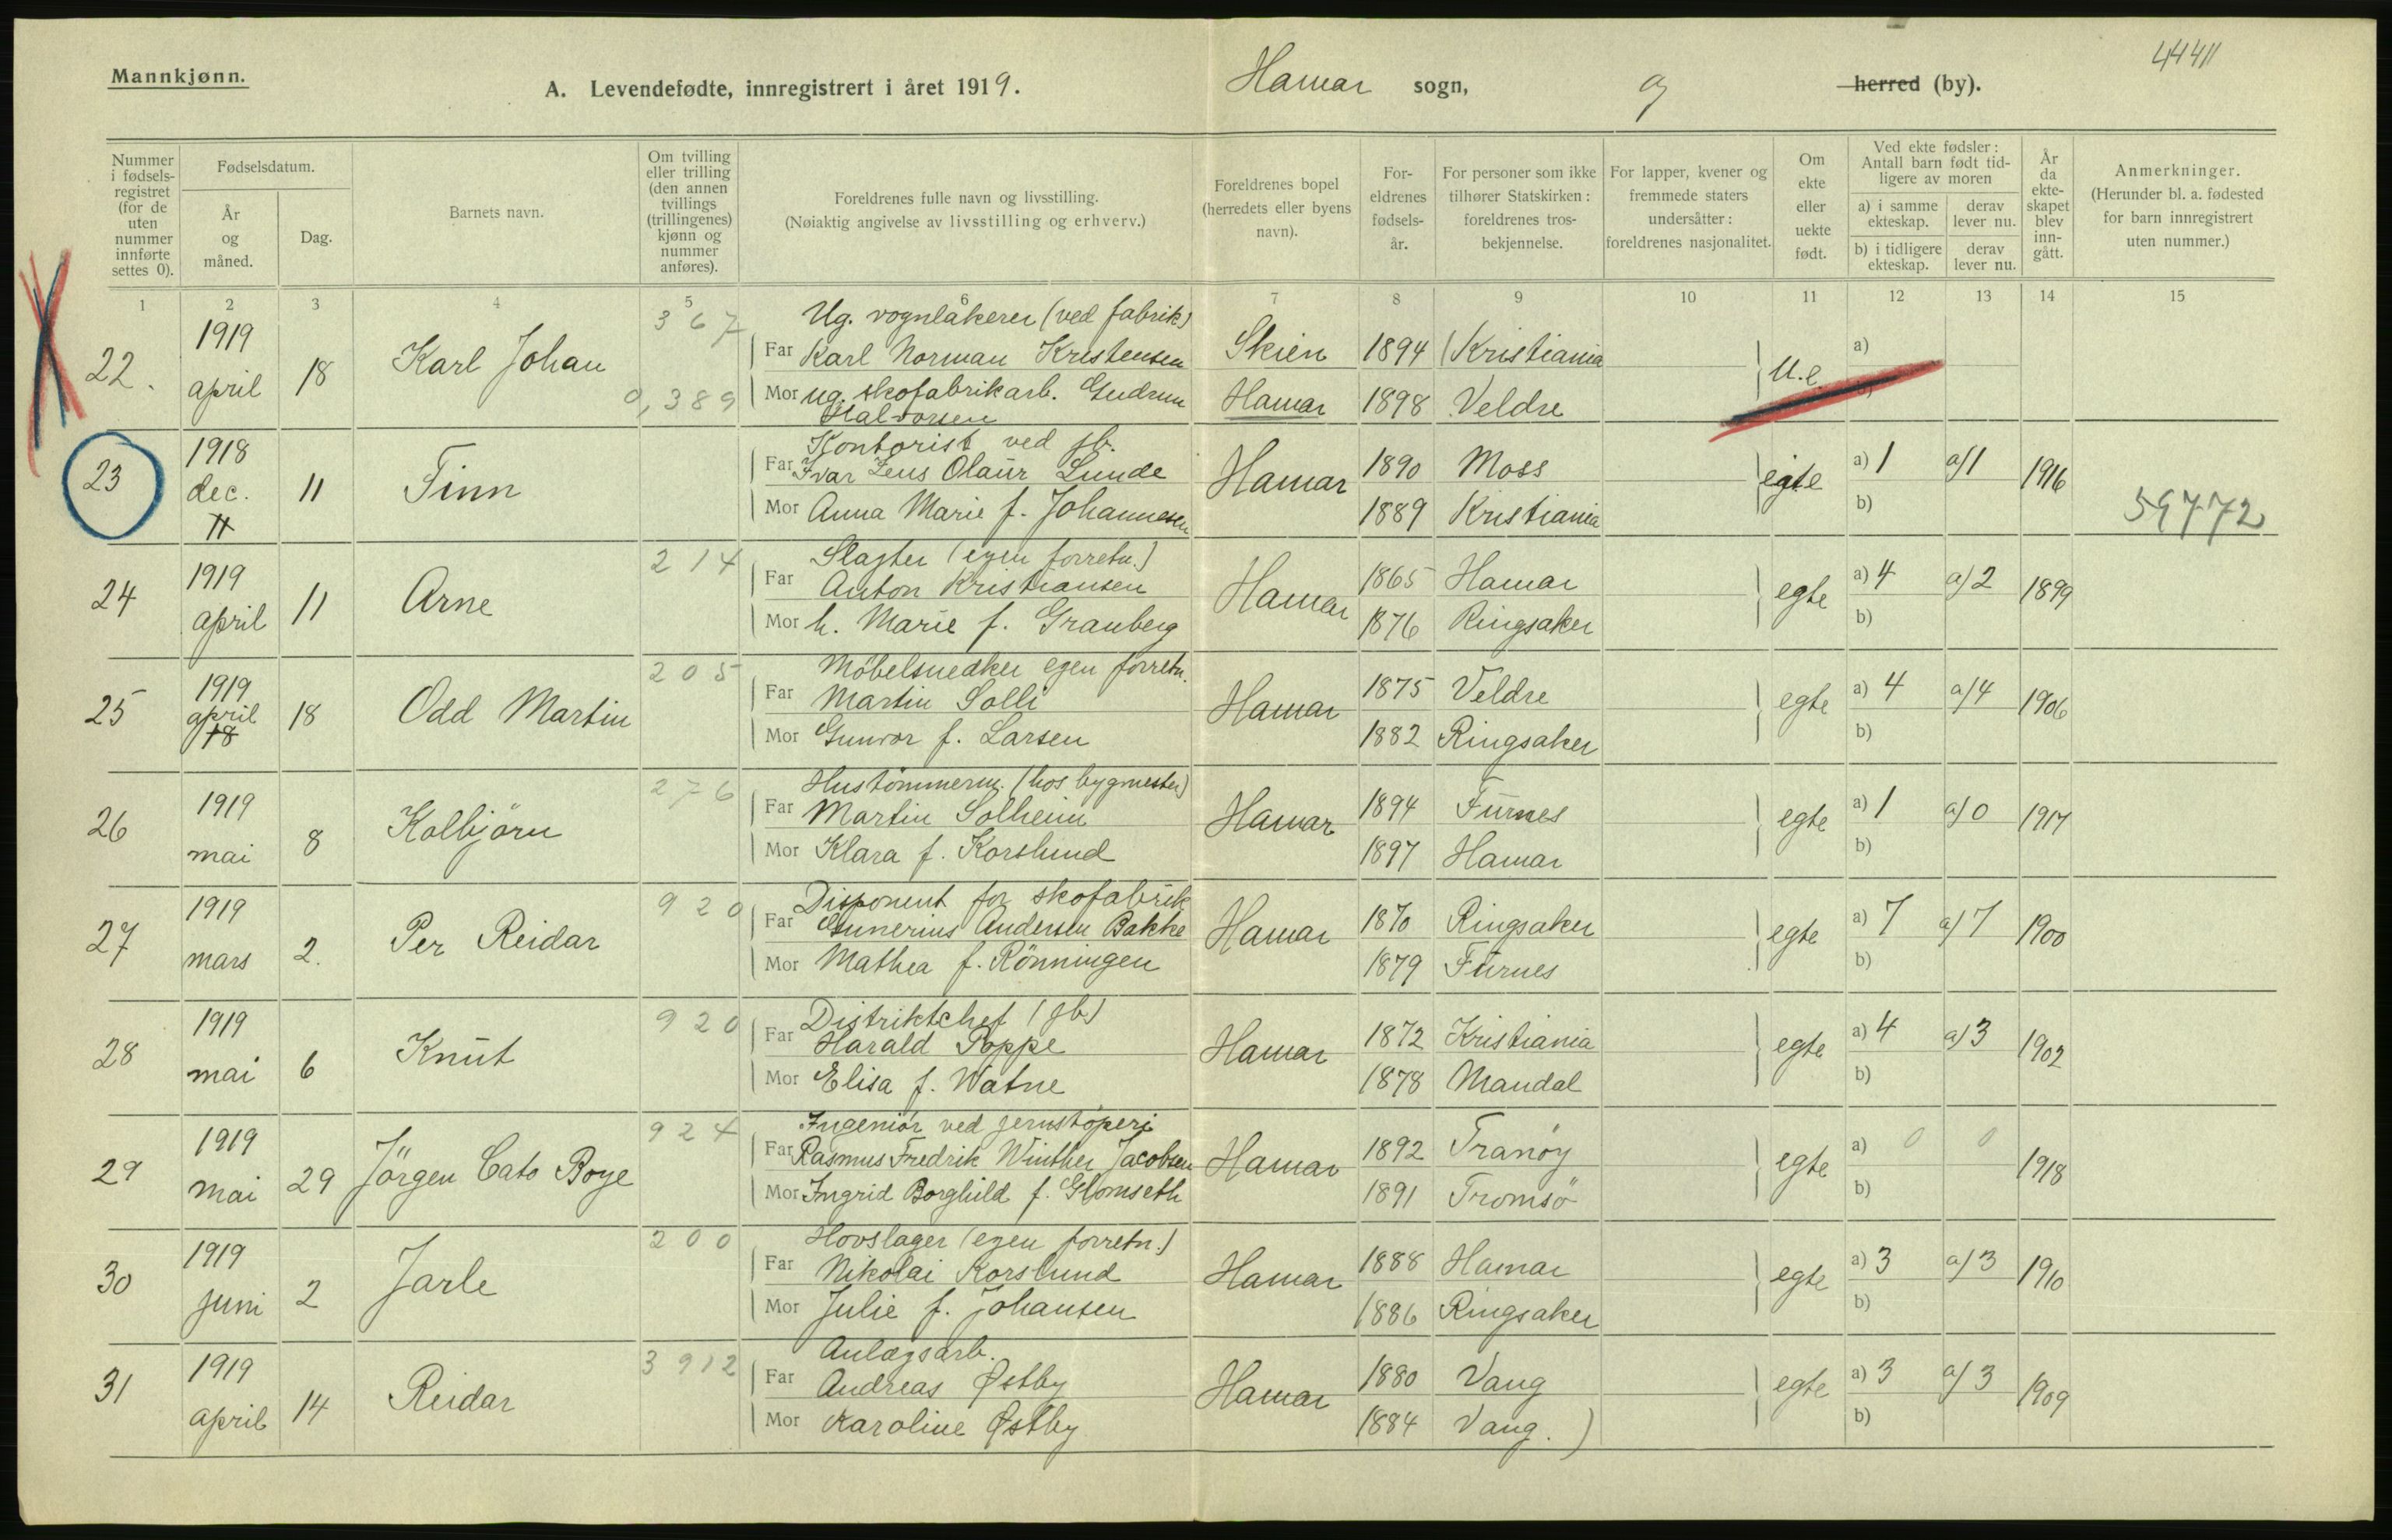 Mannkjønn.
A. Levendefødte, innregistrert i året 1919.
Hamar sogn, og herred (by).
4441
Nummer i fødsels-registret (for de uten nummer innførte settes 0).
Fødselsdatum.
År og måned.
Dag.
Barnets navn.
Om tvilling eller trilling (den annen tvillings (trillingenes) kjønn og nummer anføres).
Foreldrenes fulle navn og livsstilling.
(Nøiaktig angivelse av livsstilling og erhverv.)
Foreldrenes bopel (herredets eller byens navn).
For-eldrenes fødsels-år.
For personer som ikke tilhører Statskirken: foreldrenes tros-bekjennelse.
For lapper, kvener og fremmede staters undersåtter: foreldrenes nasjonalitet.
Om ekte eller uekte født.
Ved ekte fødsler: Antall barn født tid-ligere av moren
a) i samme ekteskap.
derav lever nu.
b) i tidligere ekteskap.
derav lever nu.
År da ekte-skapet blev inn-gått.
Anmerkninger.
(Herunder bl. a. fødested for barn innregistrert uten nummer.)
1 2 3 4 5 6 7 8 9 10 11 12 13 14 15
367
Ug. vognlakerer (ved fabrik)
22. 1919 april 18 Karl Johan
Far Karl Norman Kristensen Skien 1894 (Kristiania u.e. a)
0,389
Mor ug. skofabrikarb. Gudrun Halvorsen Hamar 1898 Veldre b)
Kontorist ved jb.
23 1918 dec. 11 11 Finn
Far Ivar Zeus Olaur Lunde Hamar 1890 Moss egte a) 1 a) 1 1916
Mor Anna Marie f. Johannesen 1889 Kristiania b)
59772
214
Slagter (egen forretn.)
24 1919 april 11 Arne
Far Anton Kristiansen Hamar 1865 Hamar egte a) 4 a) 2 1899
Mor h. Marie f. Granberg 1876 Ringsaker b)
205
Møbelsnedker egen forretn.
25 1919 april 18 18 Odd Martin
Far Martin Solli Hamar 1875 Veldre egte a) 4 a) 4 1906
Mor Gunvor f. Larsen 1882 Ringsaker b)
276
Hustömmerm. (hos bygmester)
26 1919 mai 8 Kolbjörn
Far Martin Solheim Hamar 1894 Furnes egte a) 1 a) 0 1917
Mor Klara f. Korslund 1897 Hamar b)
920
Disponent for skofabrik
27 1919 mars 2. Per Reidar
Far Gunerius Andersen Bakke Hamar 1870 Ringsaker egte a) 7 a) 7 1900
Mor Mathea f. Rönningen 1879 Furnes b)
920
Distriktchef (jb)
28 1919 mai 6 Knut
Far Harald Poppe Hamar 1872 Kristiania egte a) 4 a) 3 1902
Mor Elisa f. Watne 1878 Mandal b)
924
Ingeniör ved jernstöperi
29 1919 mai 29 Jörgen Cato Boye
Far Rasmus Fredrik Winther Jacobsen Hamar 1892 Tranöy egte a) 0 0 1918
Mor Ingrid Borghild f. Glomseth 1891 Tromsö b)
200
Hovslager (egen forretn.)
30 1919 juni 2 Jarle
Far Nikolai Korslund Hamar 1888 Hamar egte a) 3 a) 3 1910
Mor Julie f. Johansen 1886 Ringsaker b)
3912
Anlægsarb.
31 1919 april 14 Reidar
Far Andreas Østby Hamar 1880 Vang egte a) 3 a) 3 1909
Mor Karoline Østby 1884 Vang.) b)